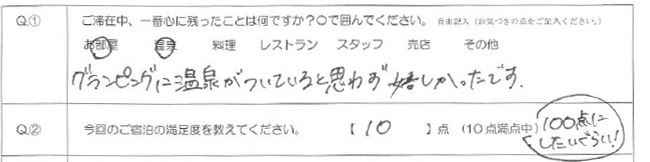 Q.① ご滞在中、一番心に残ったことは何ですか?〇で囲んでください。 自由記入(お気づきの点をご記入ください。)
お部屋 温泉 料理 レストラン スタッフ 売店 その他
グランピングに温泉がついていると思わず嬉しかったです。
Q.② 今回のご宿泊の満足度を教えてください。 【 10 】点 (10点満点中)
100点に
したいぐらい!